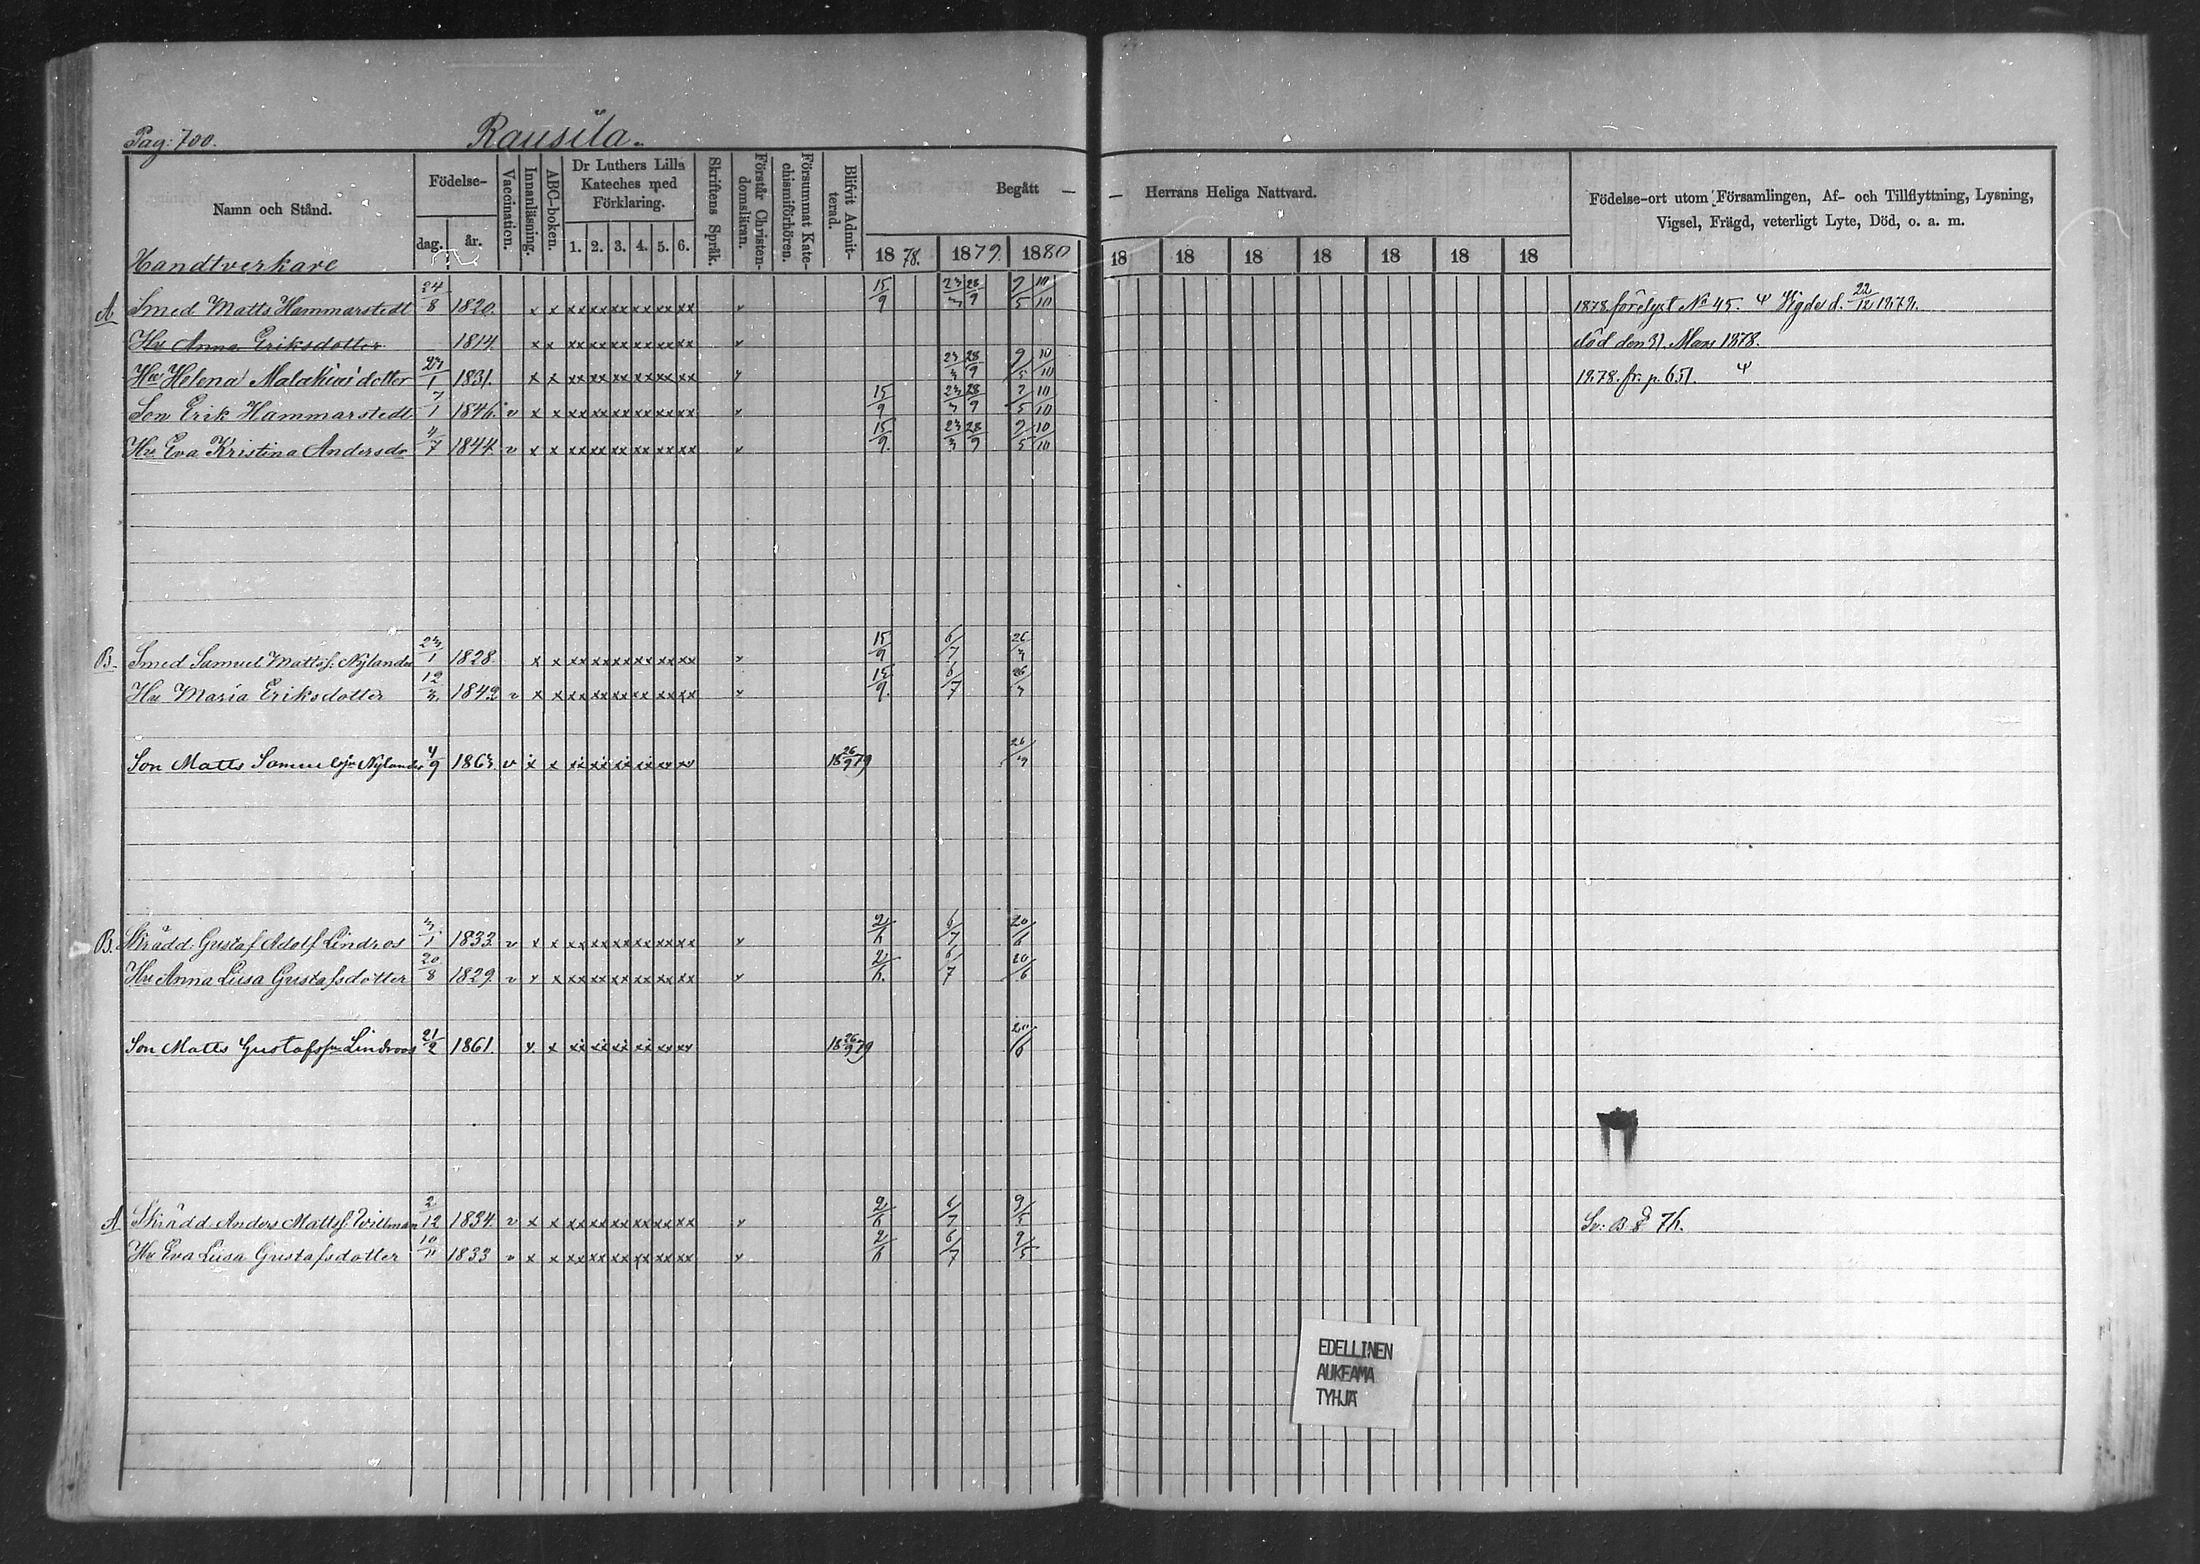 Pag: 700. Rausila.
Namn och Stånd. Födelse- dag. år. Vaccination. Innanläsning. ABC-boken. Dr Luthers Lilla Kateches med Förklaring. 1. 2. 3. 4. 5. 6. Skriftens Språk. Förstår Christendomsläran. Försummat Katechismiförhören. Blifvit Admitterad. Begått — 1878. 1879. 1880
— Herrans Heliga Nattvard. 18 18 18 18 18 18 18
Födelse-ort utom Församlingen, Af- och Tillflyttning, Lysning,
Vigsel, Frägd, veterligt Lyte, Död, o. a. m.
Handtverkare
A Smed Matts Hammarstedt 24/8 1820. x x xx xx xx xx xx xx v 15/9 23/3 28/9 9/5 10/10 1878 förelyst No 45. Ψ Vigde d. 22/12 1879.
Hu Anna Eriksdotter 1814. x x xx xx xx xx xx xx v död den 31 Mars 1878.
Hu Helena Malakias dotter 23/1 1831. x x xx xx xx xx xx xx v 23/3 28/9 9/5 10/10 1878. fr. p. 651. Ψ
Son Erik Hammarstedt 7/1 1846. v x x xx xx xx xx xx xx v 15/9 23/3 28/9 9/5 10/10
Hu Eva Kristina Andersdr 4/7 1844. v x x xx xx xx xx xx xx v 15/9. 23/3 28/9 9/5 10/10
B. Smed Samuel Mattss. Nylander 23/1 1828. x x xx xx xx xx xx xx v 15/9 6/7 26/3
Hu Maria Eriksdotter 12/3 1849 v x x xx xx xx xx xx xx v 15/9. 6/7 26/3
Son Matts Samuelsson Nylander 4/9 1863. v x x xx xx xx xx xx xx 18 26/9 79 26/3
B. Skrädd. Gustaf Adolf Lindros 3/1 1833. v x x xx xx xx xx xx xx v 2/6 6/7 20/6
Hu Anna Lusa Gustafsdotter 20/8 1829. v x x xx xx xx xx xx xx v 2/6. 6/7 20/6
Son Matts Gustafsson Lindroos 21/2 1861. x. x xx xx xx xx xx xx 18 26/9 79 20/6
A Skrädd Anders Mattss. Willman 2/12 1834. v x x xx xx xx xx xx xx v 2/6 6/7 9/5
Hu Eva Lusa Gustafsdotter 10/11 1833 v x x xx xx xx xx xx xx v 2/6 6/7 9/5
EDELLINEN
AUKEAMA
TYHJÄ